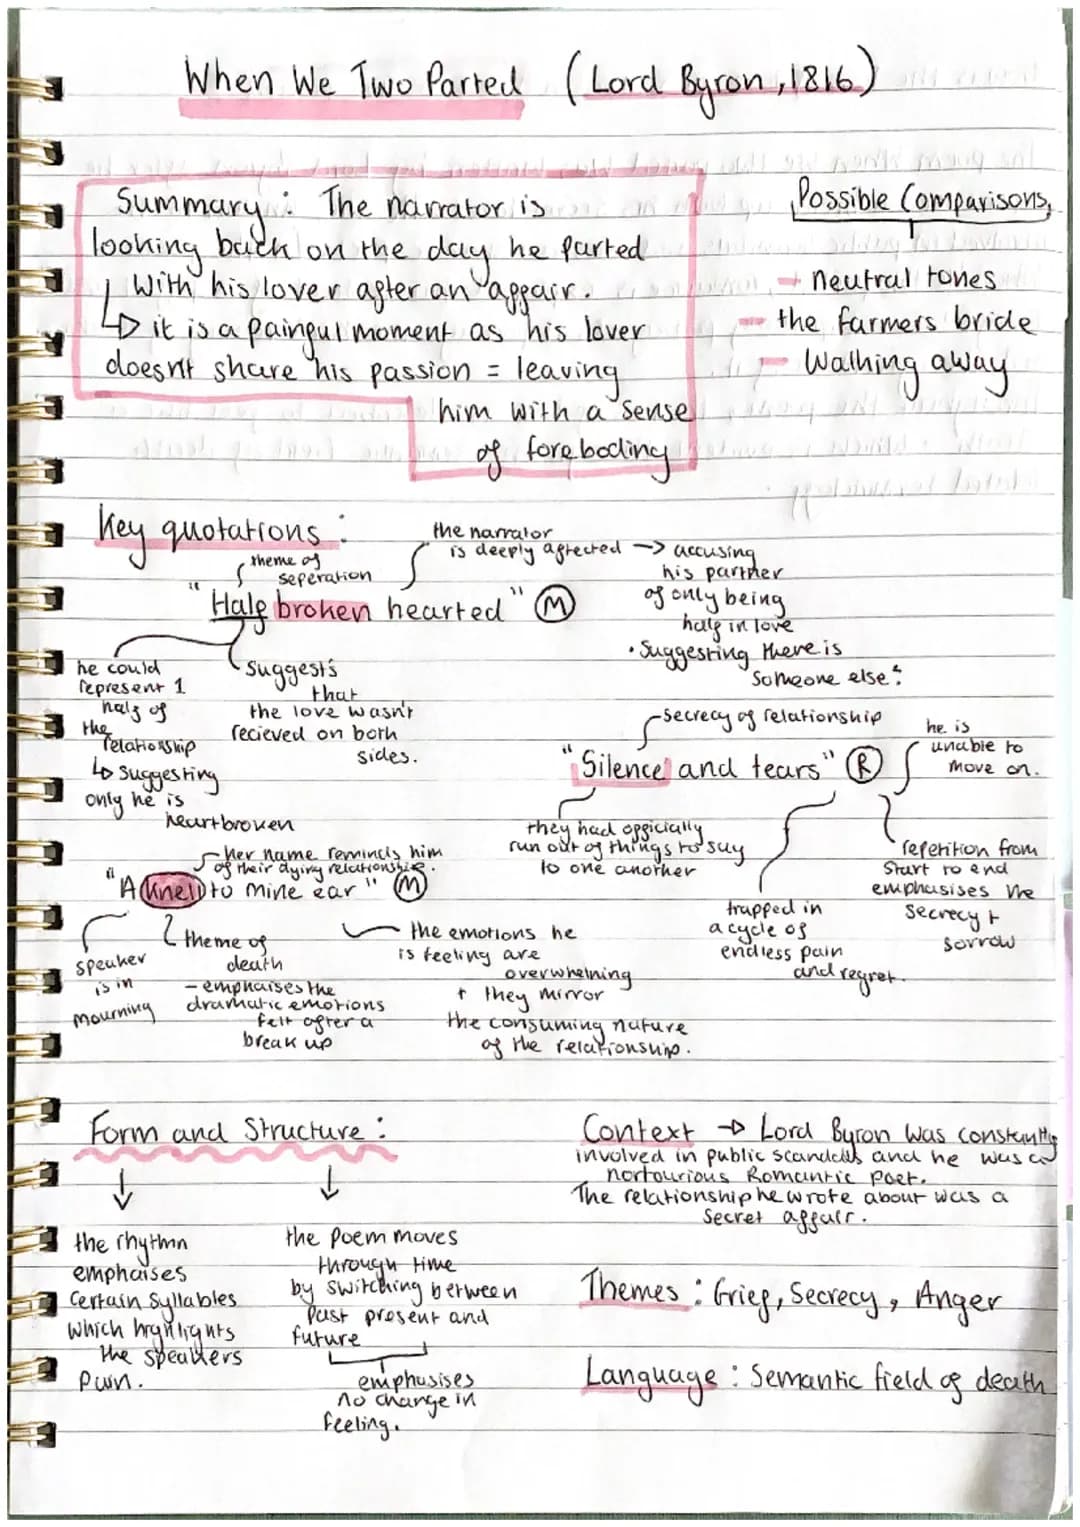 When We Two Parted (Lord Byron, 1816)
Summary: The narrator is
looking back on the day he parted
with his lover after an affair.
↳ it is a painful moment as his lover
doesn't share his passion = leaving
him with a sense
of foreboding
Possible Comparisons
- neutral tones
- the farmers bride
- Walking away
Key quotations:
theme of
seperation
the narrator
is deeply affected → accusing
his partner
of only being
half in love
• Suggesting there is
someone else?
"Half broken hearted" (M)
he could
represent 1
half of
the
relationship
↳ suggesting
only he is
heartbroken
Suggests
that
the love wasn't
recieved on both
sides.
secrecy of relationship
he is
unable to
move on.
"Silence and tears" (R)
they had officially
run out of things to say
to one another
trapped in
a cycle of
endless pain
and regret.
repetition from
start to end
emphasises the
secrecy +
sorrow
her name reminds him
of their dying relationship.
"A knell to mine ear" (M)
speaker
is in
mourning
theme of
death
- emphaises the
dramatic emotions
felt after a
break up
the emotions he
is feeling are
overwhelning
+ they mirror
the consuming nature
of the relationship.
Form and Structure:
the rhythmn
emphaises
certain syllables
which highlights
the speakers
pain.
the poem moves
through time
by switching between
past present and
future
emphasises
no change in
feeling.
Context → Lord Byron was constantly
involved in public scandals and he was a
nortourious Romantic poet.
The relationship he wrote about was a
secret affair.
Themes: Grief, Secrecy, Anger
Language: Semantic field of death